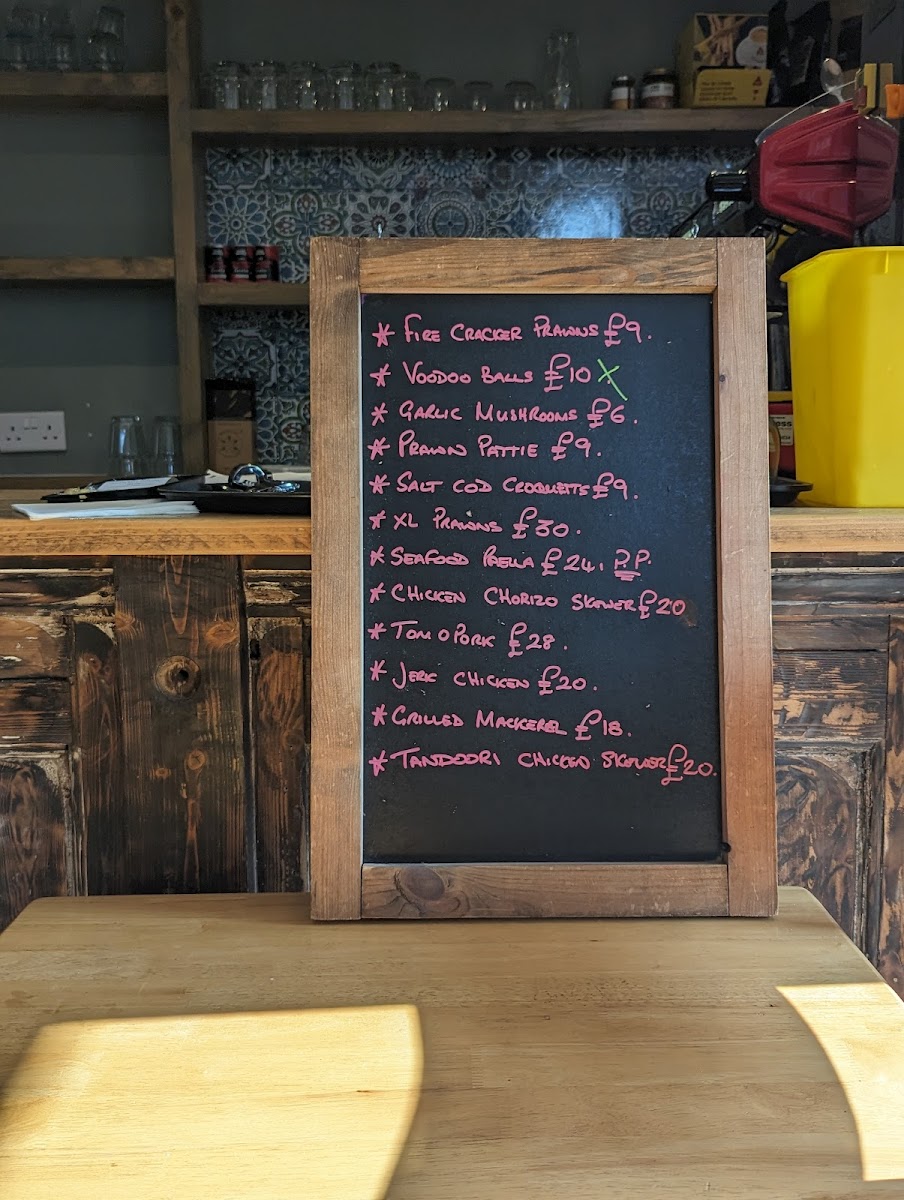 * FIRE CRACKER PRAWNS £9.
* VOODOO BALLS £10 X
* GARLIC MUSHROOMS £6.
* PRAWN PATTIE £9.
* SALT COD CROQUETTS £9.
* XL PRAWNS £30.
* SEAFOOD PAELLA £24, P.P.
* CHICKEN CHORIZO SKEWER £20
* TOM O PORK £28.
* JERK CHICKEN £20.
* GRILLED MACKEREL £18.
* TANDOORI CHICKEN SKEWER £20.